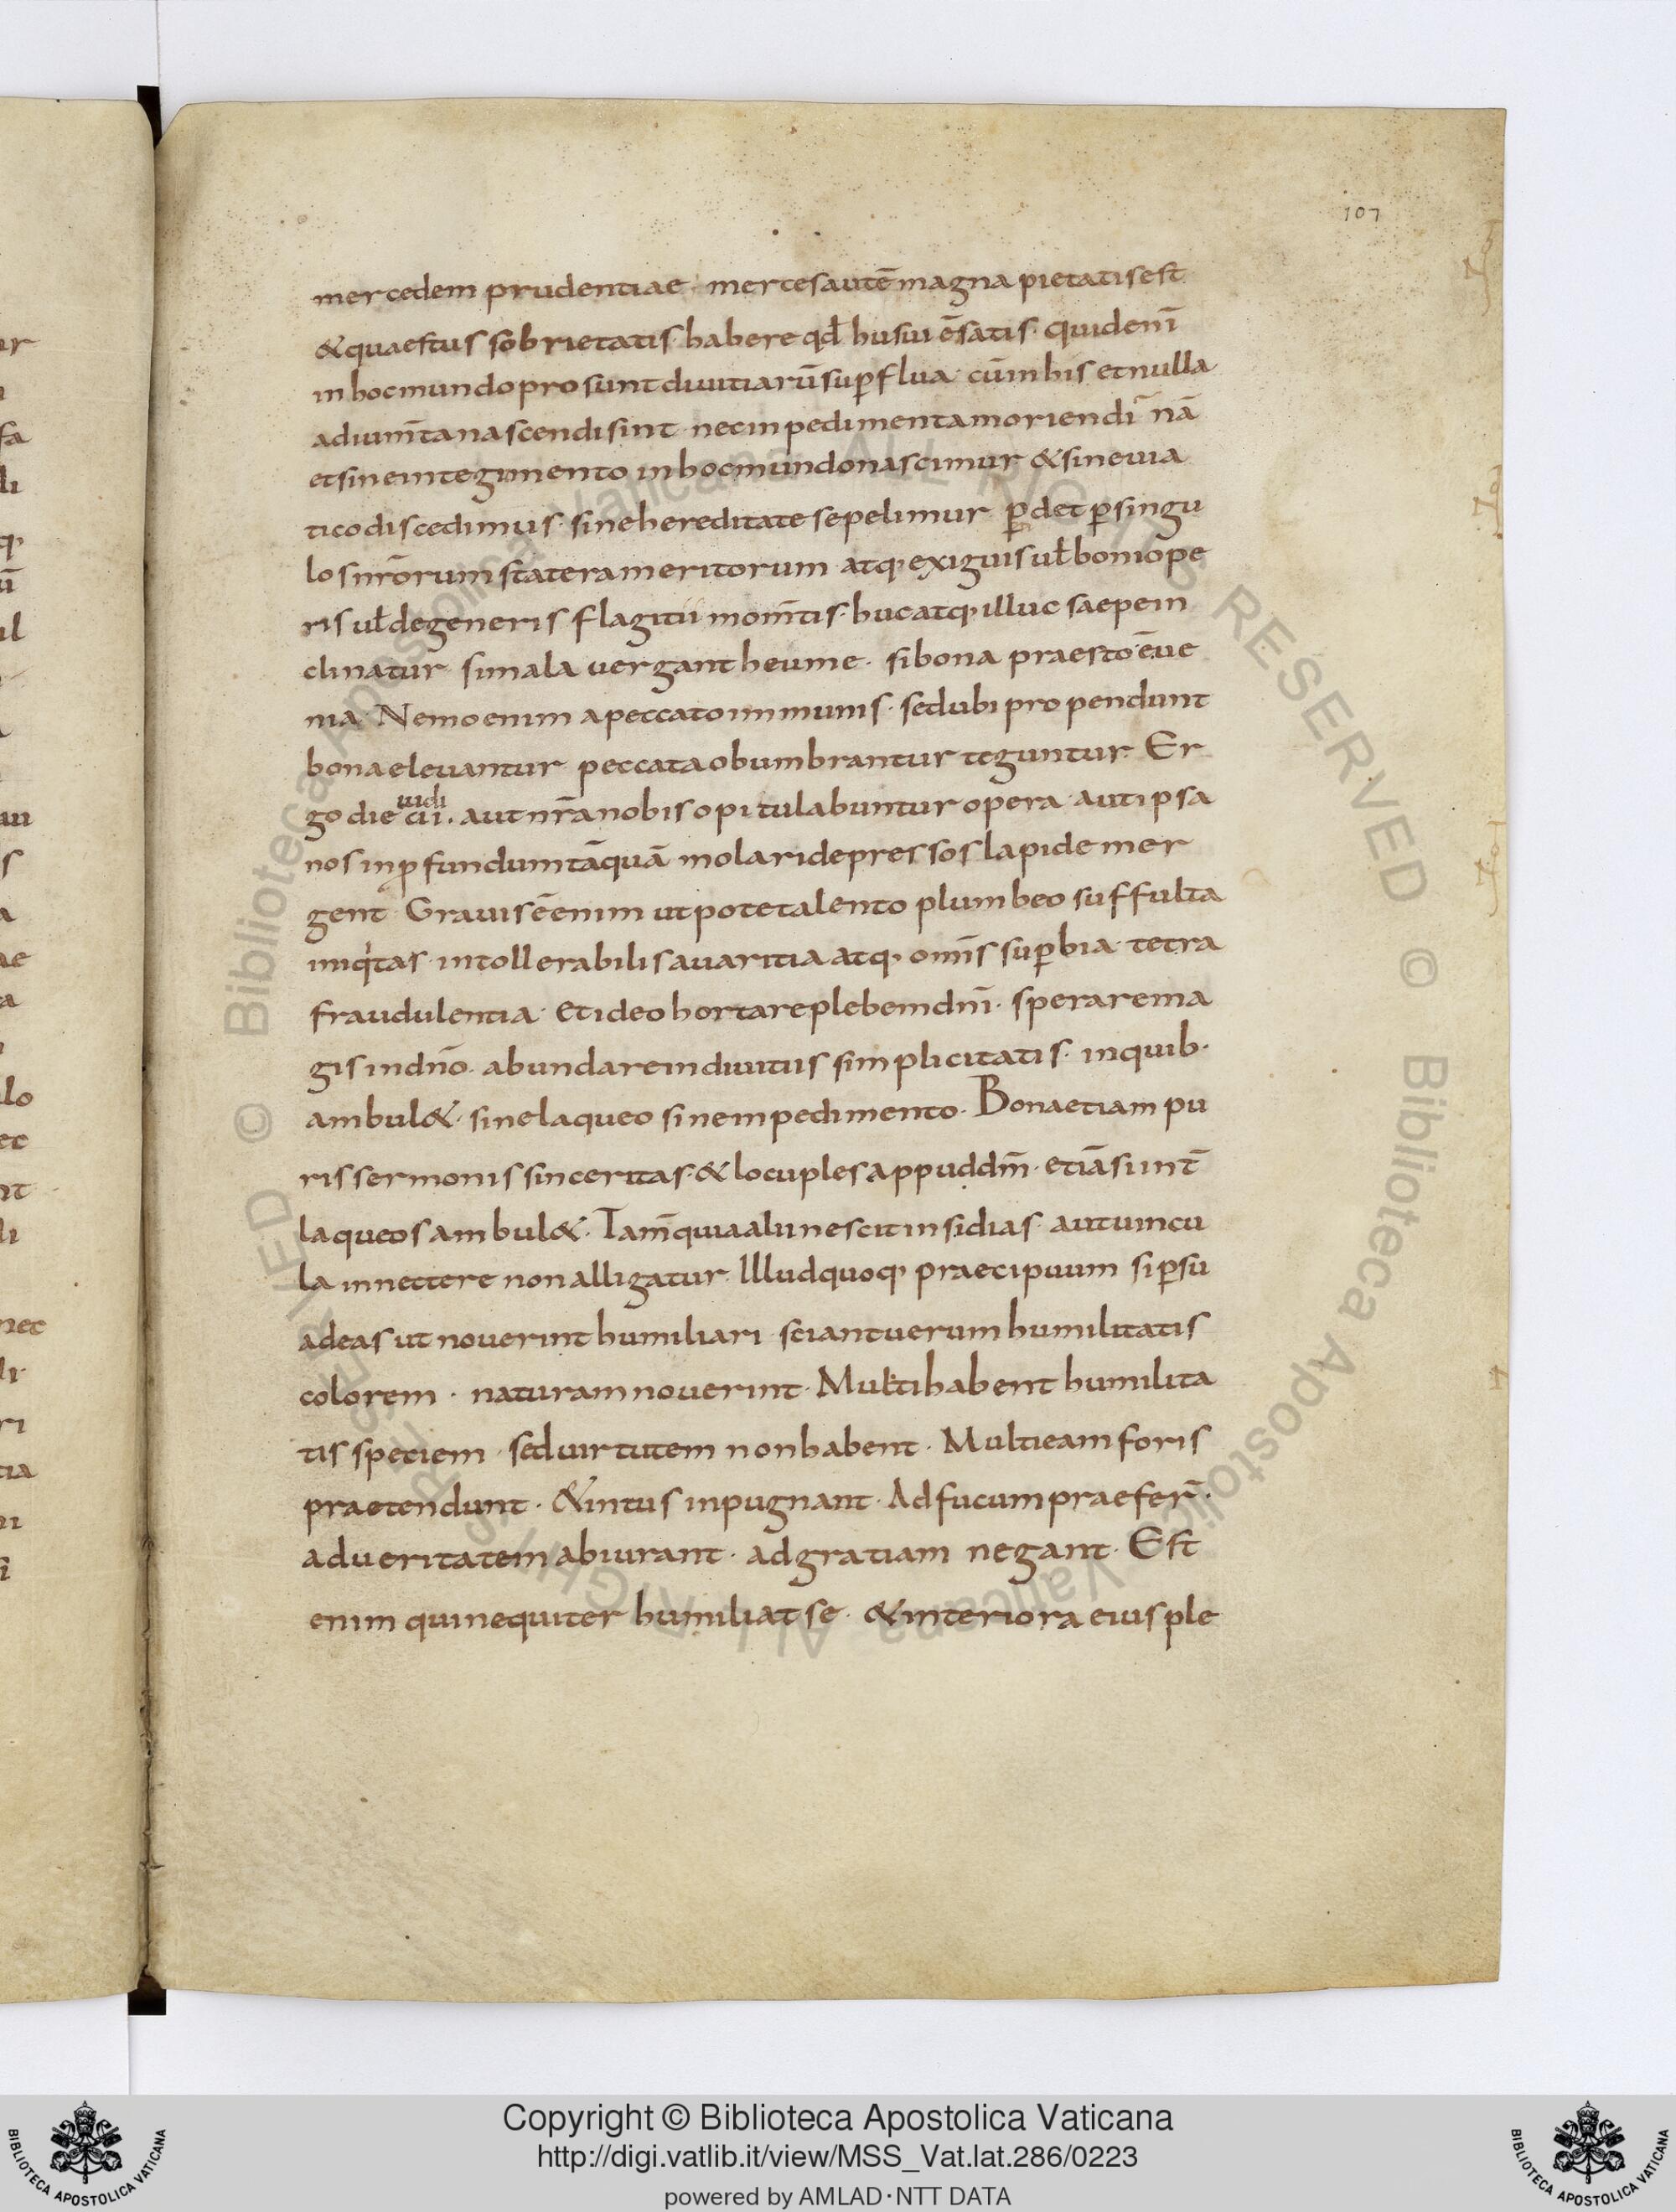 107
mercedem prudentiae · merces autē magna pietatis est
& quaestus sobrietatis · habere qđ husui ē satis · quid enī
in hoc mundo prosunt divitiarū suꝑflua · cūm his et nulla
adium̄ta nascendi sint · nec inpedimenta moriendi · nā
et sine integimento in hoc mundo nascimur & sine uia
tico discedimus · sine hereditate sepelimur · ꝑdet ꝑ singu
los nr̄orum statera meritorum atq· exiguis ul̄ boni ope
ris ul̄ degeneris flagitii mom̄tis · huc atq· illuc saepe in
clinatur · si mala uergant heu me · si bona praesto ē ue
nia · Nemo enim a peccato immunis · sed ubi propendunt
bona eleuantur peccata obumbrantur teguntur · Er
uidi
go die cii · aut nr̄a nobis opitulabuntur opera · aut ipsa
nos in ꝓfundum tāquā molari depressos lapide mer
gent · Grauis ē enim ut pote talento plumbeo suffulta
iniqͥtas · intollerabilis auaritia atq· omīs suꝑbia · tetra
fraudulentia · Et ideo hortare plebem dnī · sperare ma
gis in dnō · abundare in diuitiis simplicitatis · in quib·
ambul& · sine laqueo sine inpedimento · Bona etiam pu
ris sermonis sinceritas · & locuples apput dm̄ · etiā si int̄
laqueos ambul& · Tam̄ quia alii nescit insidias · aut uincu
la innectere non alligatur · Illud quoq· praecipuum si ꝑsu
adeas ut nouerint humiliari · sciant uerum humilitatis
colorem · naturam nouerint · Multi habent humilita
tis speciem · sed uirtutem non habent · Multi eam foris
praetendunt · & intus inpugnant · Ad fucum praefer̄ ·
ad ueritatem abiurant · ad gratiam negant · Est
enim qui nequiter humiliat se · & interiora eius ple
Copyright © Biblioteca Apostolica Vaticana
http://digi.vatlib.it/view/MSS_Vat.lat.286/0223
powered by AMLAD·NTT DATA